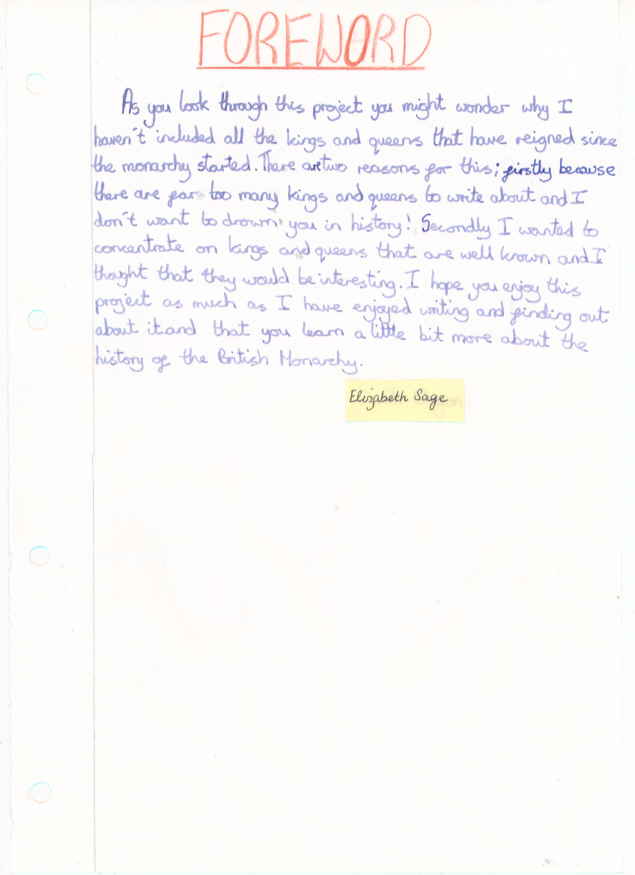 FOREWORD
As you look through this project you might wonder why I
haven't included all the kings and queens that have reigned since
the monarchy started. There are two reasons for this; firstly because
there are far too many kings and queens to write about and I
don't want to drown you in history! Secondly I wanted to
concentrate on kings and queens that are well known and I
thought that they would be interesting. I hope you enjoy this
project as much as I have enjoyed writing and finding out
about it and that you learn a little bit more about the
history of the British Monarchy.
Elizabeth Sage